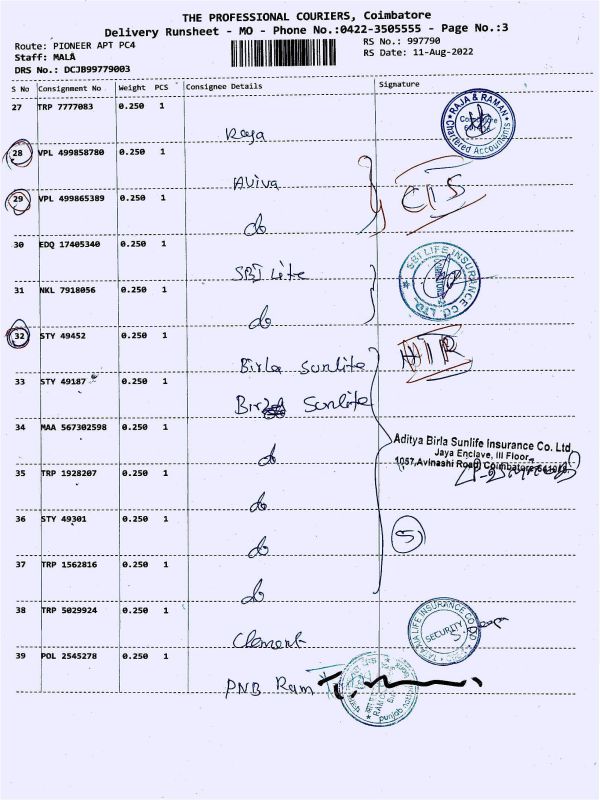 THE PROFESSIONAL COURIERS, Coimbatore
Delivery Runsheet - MO - Phone No.:0422-3505555 - Page No.:3
Route: PIONEER APT PC4
RS No.: 997790
Staff: MALA
RS Date: 11-Aug-2022
DRS No.: DCJB99779003
S No Consignment No Weight PCS Consignee Details Signature
27 TRP 7777083 0.250 1
Raja
RAJA & RAMAN
Coimbatore
Chartered Accountants
28 VPL 499858780 0.250 1
Aviva
29 VPL 499865389 0.250 1
do
30 EDQ 17405340 0.250 1
SBI Life
SBI LIFE INSURANCE CO. LTD.
31 NKL 7918056 0.250 1
do
32 STY 49452 0.250 1
Birla Sunlife
33 STY 49187 0.250 1
Sunlife
34 MAA 567302598 0.250 1
do
Aditya Birla Sunlife Insurance Co. Ltd.
Jaya Enclave, III Floor,
1057, Avinashi Road, Coimbatore
35 TRP 1928207 0.250 1
do
36 STY 49301 0.250 1
do
5
37 TRP 1562816 0.250 1
do
38 TRP 5029924 0.250 1
Clement
LIFE INSURANCE CO
SECURITY
39 POL 2545278 0.250 1
PNB Ram